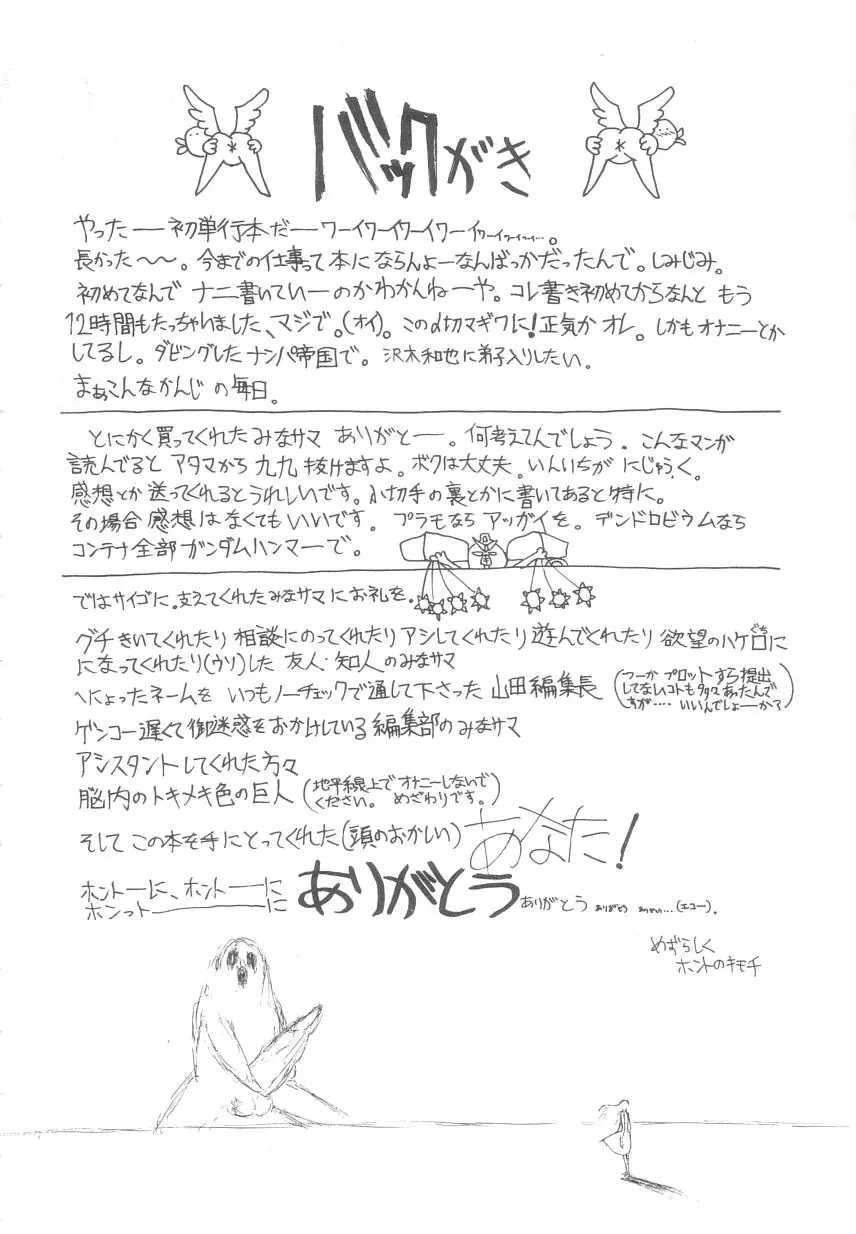 バックがき
やったー初単行本だーワーイワーイワーイワーイワーイワーイワーイ…。
長かった〜〜。今までの仕事って本にならんよーなんばっかだったんで。しみじみ。
初めてなんで ナニ書いていーのかわかんねーや。コレ書き初めてからなんと もう
12時間もたっちゃいました、マジで。(オイ)。この〆切マギワに!正気かオレ。しかもオナニーとか
してるし。ダビングしたナンパ帝国で。沢木和也に弟子入りしたい。
まぁこんなかんじの毎日。
とにかく買ってくれたみなサマ ありがとー。何考えてんでしょう。こんなマンガ
読んでると アタマから九九抜けますよ。ボクは大丈夫。いんいちが にじゅうく。
感想とか送ってくれるとうれしいです。小切手の裏とかに書いてあると特に。
その場合感想はなくてもいいです。プラモなら アッガイを。デンドロビウムなら
コンテナ全部ガンダムハンマーで。
ではサイゴに。支えてくれたみなサマにお礼を。
グチきいてくれたり 相談にのってくれたり アシしてくれたり 遊んでくれたり 欲望のハケ口(ぐち)に
になってくれたり(ウソ)した 友人・知人のみなサマ
へにょったネームを いつもノーチェックで通して下さった 山田編集長 (つーか プロットすら提出
してないコトも多々あったんで
すが…. いいんでしょーか?)
ゲンコー遅くて御迷惑をおかけしている編集部のみなサマ
アシスタントしてくれた方々
脳内のトキメキ色の巨人 (地平線上でオナニーしないで
ください。 めざわりです。)
そして この本を手にとってくれた(頭のおかしい) あなた!
ホントーに、ホントーーに
ホンットーーーーーに ありがとう ありがとう ありがとう ありがとう…(エコー)。
めずらしく
ホントのキモチ